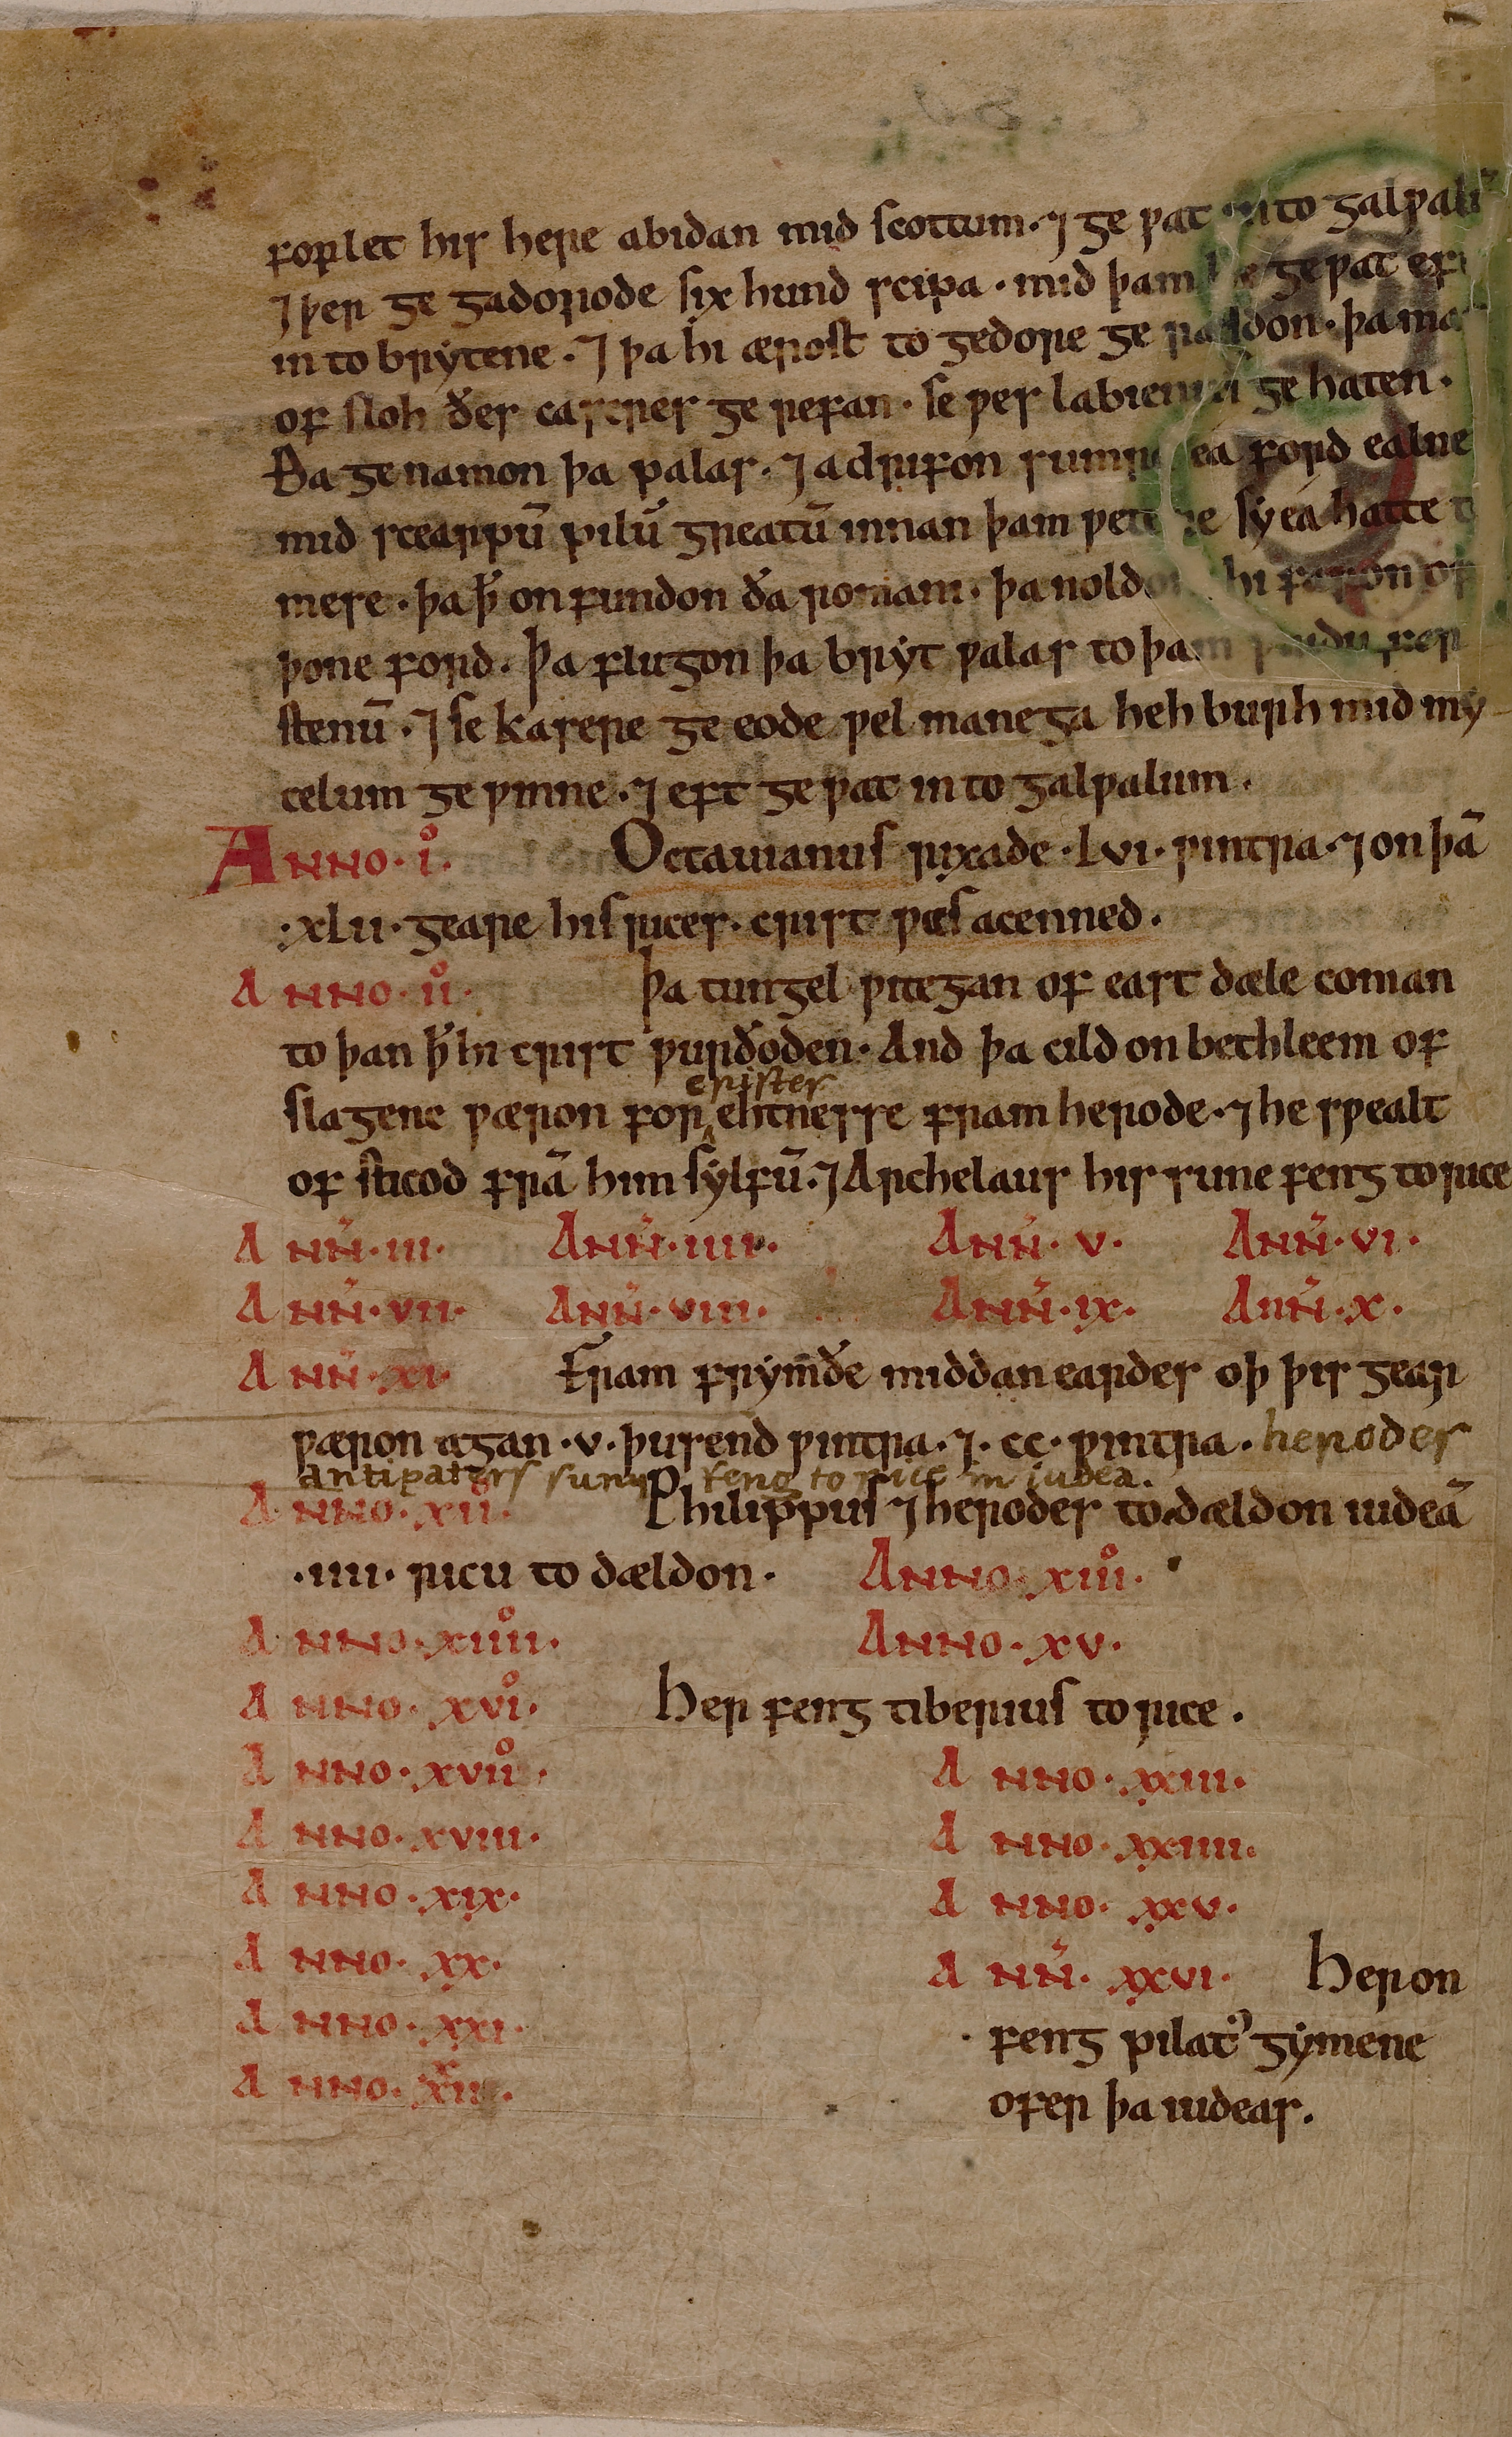 forlet his here abidan mid scottum · ⁊ ge ƿat into galƿalū
⁊ þer ge gadorode six hund scipa · mid þam he geƿat eft
in to brytene · ⁊ þa hi ærost to gedore ge ræsdon · þa ma
of sloh ðes caseres ge refan · se ƿes labienus ge haten ·
Ða ge namon þa ƿalas · ⁊ adrifon sumre ea ford ealne
mid scearpū pilū greatū innan þam ƿetere sy ea hatte t
mese · þa ꝥ onfundon ða romani · þa noldon hi faron of
þone ford · Þa flugon þa bryt ƿalas to þam ƿudu fes
stenū · ⁊ se kasere ge eode ƿel manega heh burh mid my
celum ge ƿinne · ⁊ eft ge ƿat in to galƿalum ·
ANNO · i · Octauianus rixade · lvi · ƿintra · ⁊ on þā
· xlii · geare his rices · crist ƿæs acenned ·
ANNO · ii · Þa tungel ƿitegan of east dæle coman
to þan ꝥ hi crist ƿurðoden · And þa cild on bethleem of
cristes
slagene ƿæron for ehtnesse fram herode · ⁊ he sƿealt
of sticod frā him sylfū · ⁊ Archelaus his sune feng to rice
ANN̄ · iii · ANN̄ · iiii · ANN̄ · v · ANN̄ · vi ·
ANN̄ · vii · ANN̄ · viii · ANN̄ · ix · ANN̄ · x ·
ANN̄ · xi · Fram frym̄ðe middan eardes oþ þis gear
ƿæron agan · v · þusend ƿintra · ⁊ · cc · ƿintra · herodes
antipaters sunu feng to rice in iudea ·
ANNO · xii · Philippus ⁊ herodes todældon iudeā
· iiii · ricu to dældon · ANNO · xiii ·
ANNO · xiiii · ANNO · xv ·
ANNO · xvi · Her feng tiberius to rice ·
ANNO · xvii · ANNO · xxiii ·
ANNO · xviii · ANNO · xxiiii ·
ANNO · xix · ANNO · xxv ·
ANNO · xx · ANN̄ · xxvi · Her on
ANNO · xxi · feng pilatꝰ gymene
ANNO · xxii · ofer þa iudeas ·